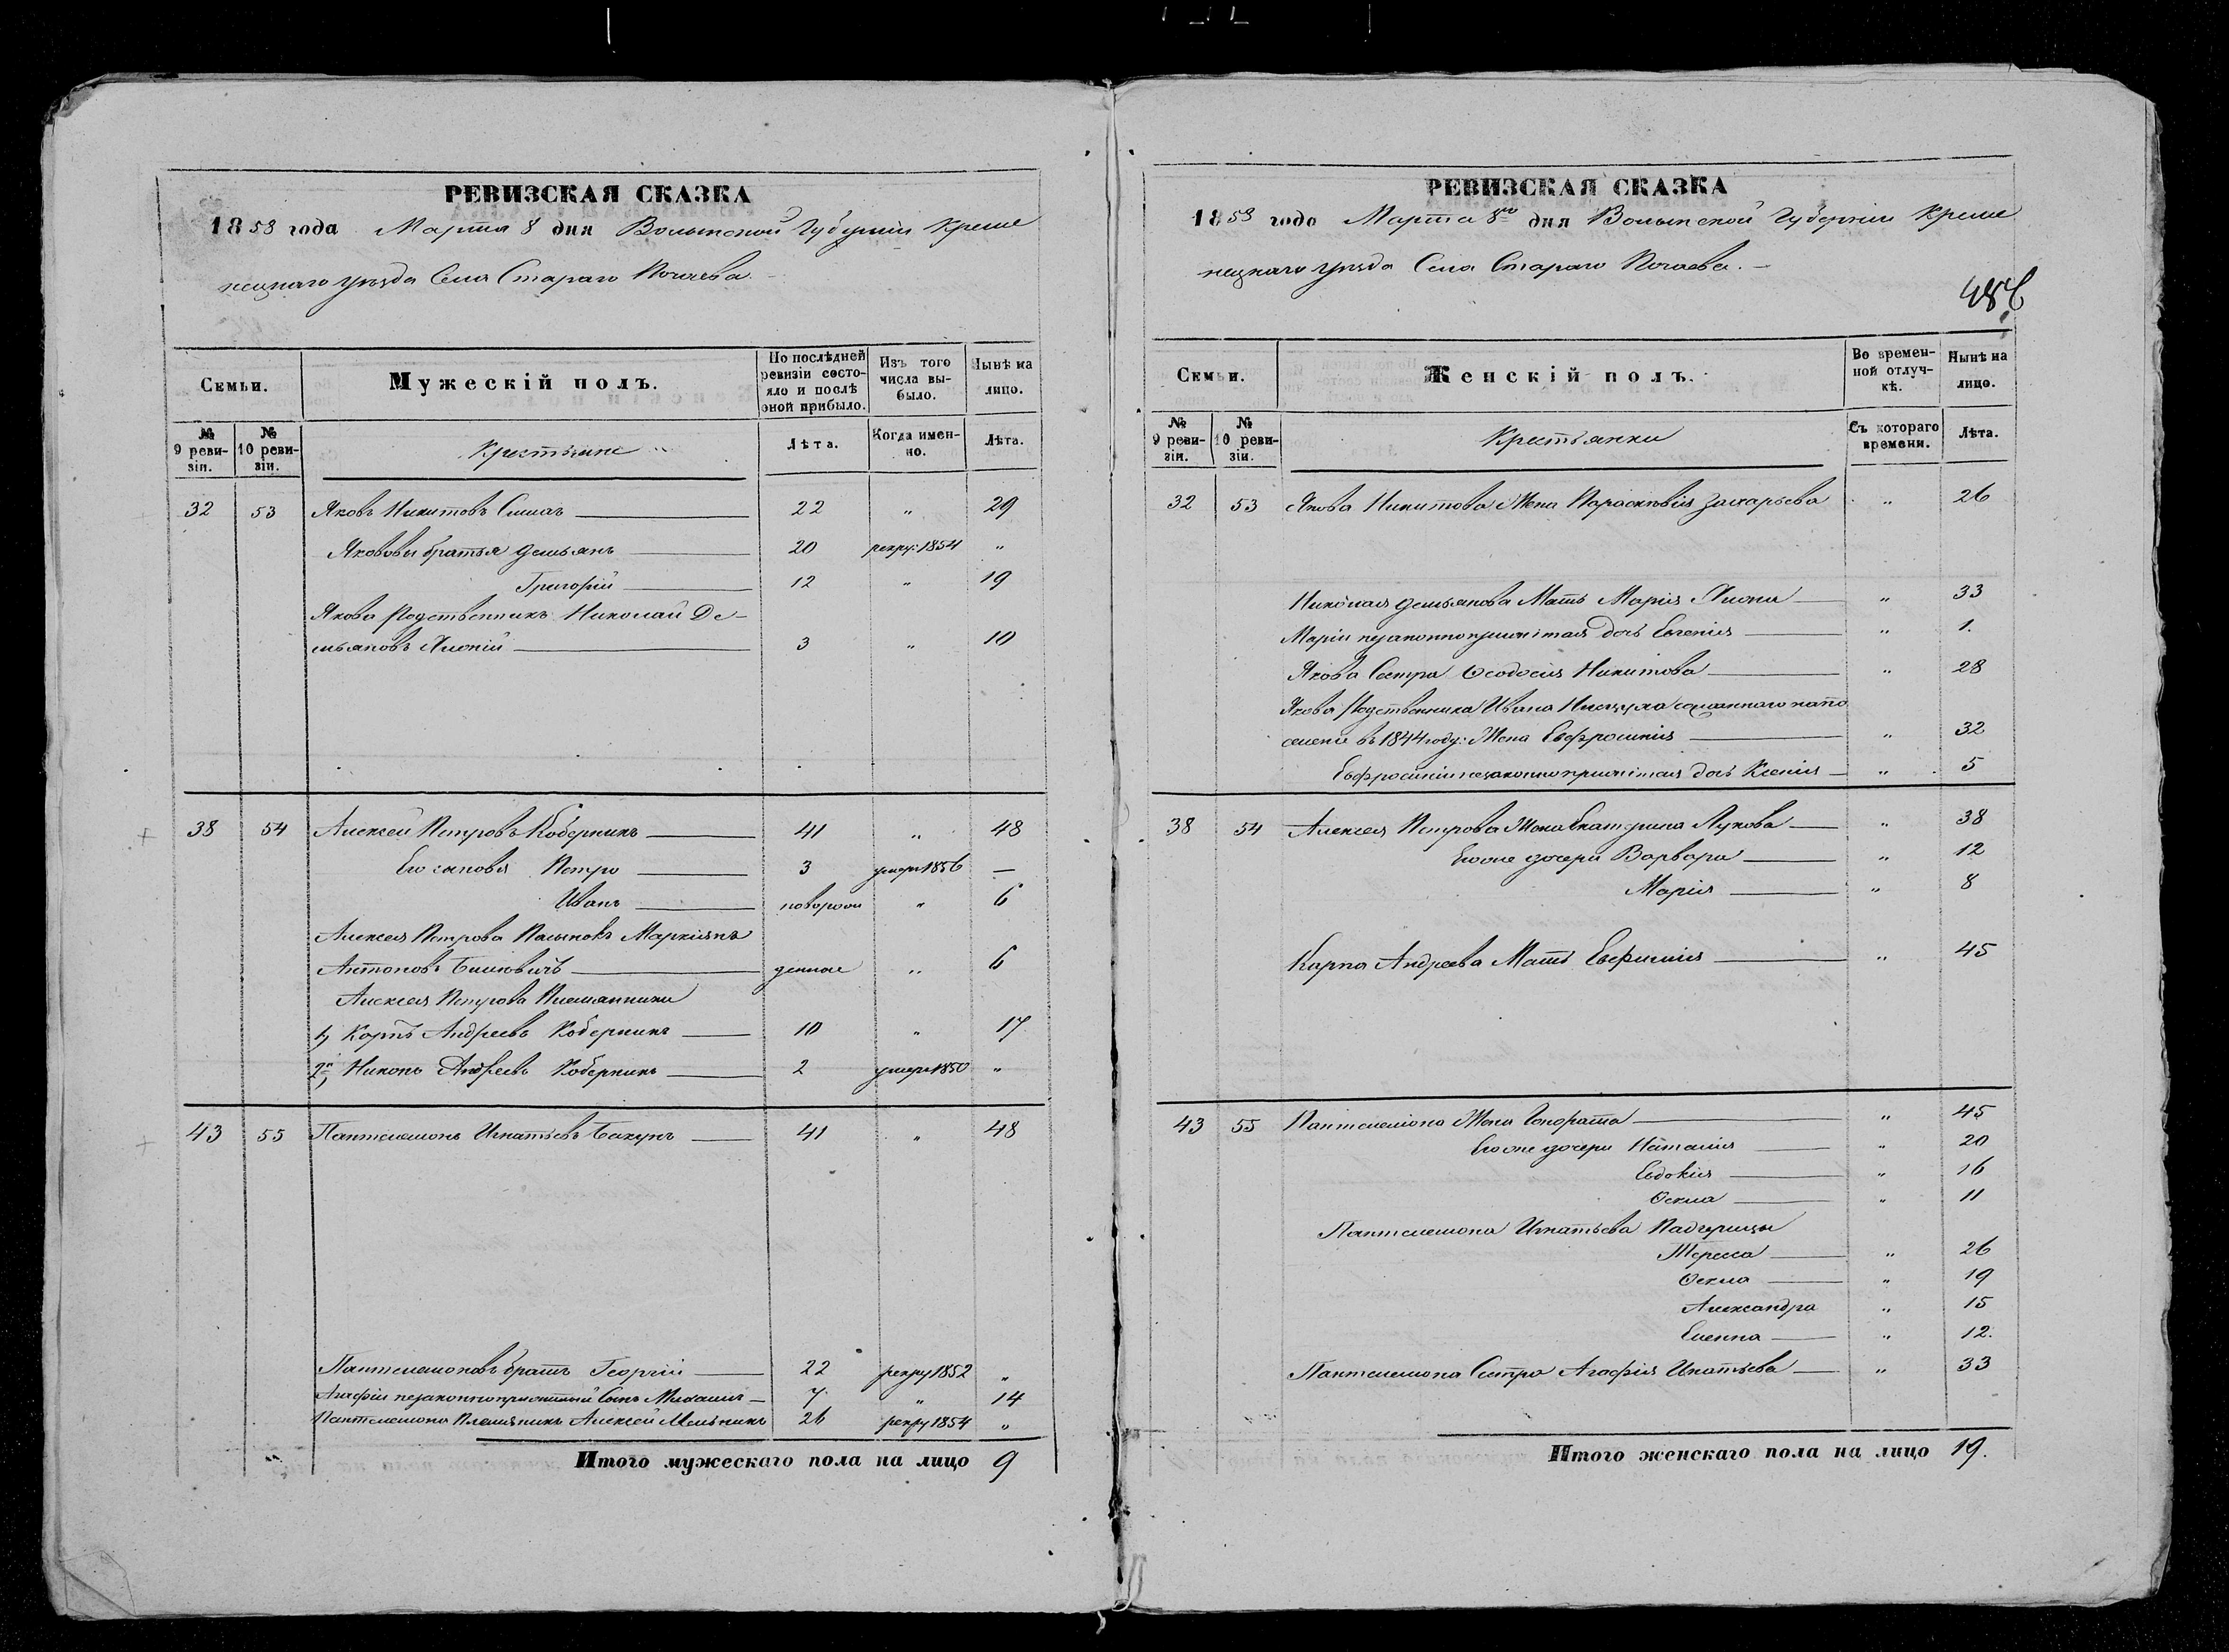 РЕВИЗСКАЯ СКАЗКА
1858 года Марта 8 дня Волынской Губерніи Креме
нецкаго уѣзда Села Стараго Почаева.
Семьи.
Мужескій полъ.
По послѣдней ревизіи состояло и послѣ оной прибыло.
Изъ того числа выбыло.
Нынѣ на лицо.
№ 9 ревизіи.
№ 10 ревизіи.
Крестьяне
Лѣта.
Когда именно.
Лѣта.
32 53 Яковъ Никитовъ 22 " 29
Якововы братья Демьянъ 20 рекру: 1854 "
Григорій 12 " 19
Якова Родственникъ Николай Де-
мьяновъ 3 " 10
38 54 Алексей Петровъ Коберникъ 41 " 48
Его сыновья Петро 3 умеръ 1856 —
Иванъ новорож 6
Алексея Петрова Пасынокъ Маркіянъ
Антоновъ денные " 6
Алексея Петрова Племянники
1, Карпъ Андреевъ Коберникъ 10 " 17
2й, Никонъ Андреевъ Коберникъ 2 умеръ 1850 "
43 55 Пантелемонъ Игнатьевъ Бакунъ 41 " 48
Пантелемоновъ братъ Георгій 22 рекру 1852 "
Агафіи незаконноприжитый Сынъ Михаилъ 7 " 14
Пантелемона Племяникъ Алексей Мельникъ 26 рекру 1854 "
Итого мужескаго пола на лицо 9
РЕВИЗСКАЯ СКАЗКА
1858 года Марта 8го дня Волынской Губерніи Креме
нецкаго уѣзда Села Стараго Почаева.
Семьи.
Женскій полъ.
Во временной отлучкѣ.
Нынѣ на лицо.
№ 9 ревизіи.
№ 10 ревизіи.
Крестьянки
Съ котораго времени.
Лѣта.
32 53 Якова Никитова Жена Параскевія Захарьева " 26
Николая Демьянова Мать Марія " 33
Маріи незаконноприжитая дочь Евгенія " 1.
Якова Сестра Феодосія Никитова " 28
Якова Родственника Ивана сосланного на по
селеніе въ 1844 году: Жена Евфросинія " 32
Евфросиніи незаконноприжитая дочь Ксенія " 5
38 54 Алексея Петрова Жена Екатерина Лукова " 38
Его же дочери Варвара " 12
Марія " 8
Карпа Андреева Мать Евфимія " 45
43 55 Пантелемона Жена Гонората " 45
Его же дочери Наталія " 20
Евдокія " 16
Фекла " 11
Пантелемона Игнатьева Падчерицы
Тереса " 26
Фекла " 19
Александра " 15
Еленна " 12.
Пантелемона Сестра Агафія Игнатьева " 33
Итого женскаго пола на лицо 19.